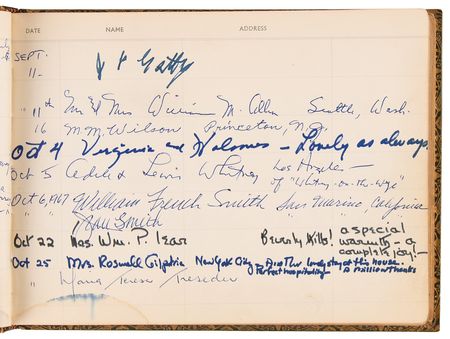 DATE NAME ADDRESS
SEPT.
11- Gatty
" 11th Mr & Mrs William M. Allen Seattle, Wash.
16 M.M. Wilson Princeton, N.J.
Oct 4 Virginia and Holmes - Lovely as always.
Oct 5 & Lewis Whitney Los Angeles -
of "Whitney-on-the-Wye"
Oct 6, 1967 William French Smith San Marino, California
" " Smith
Oct 22 Mrs. Wm. P. Lear Beverly Hills! a special
warmth - a
complete joy! -
Oct 25 Mrs. Roswell Gilpatric New York City - Another lovely stay at this house.
Perfect hospitality - A million thanks
" Teresa